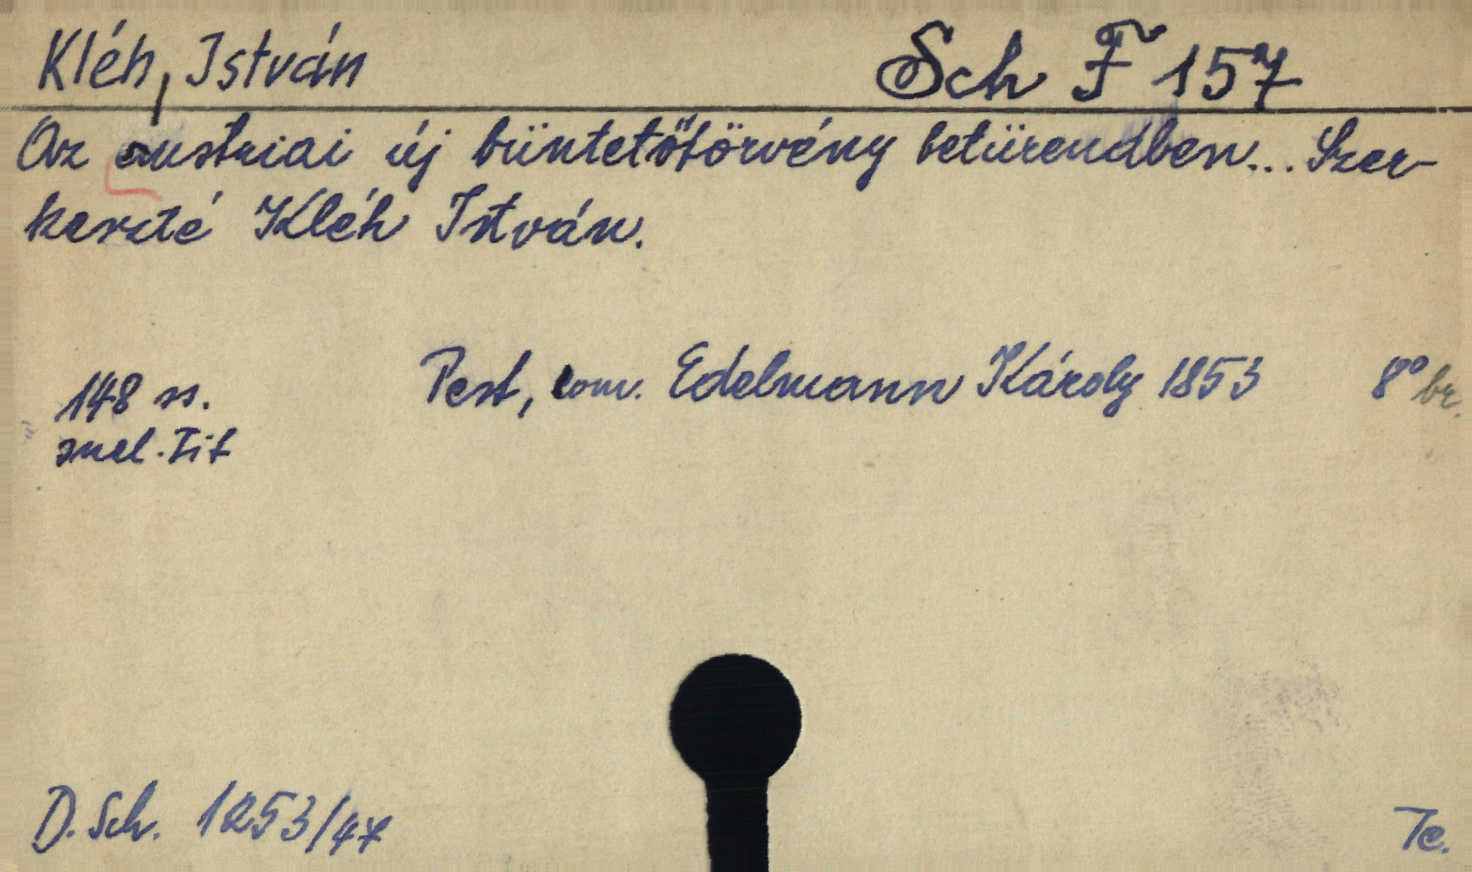 Kléh, István
Sch F 157
Az austriai új büntetőtörvény betürendben... Szer-
keszté Kléh István.
Pest, com. Edelmann Károly 1853 8° br.
148 ss.
incl. Tit
D. Sch. 1253/47
Te.